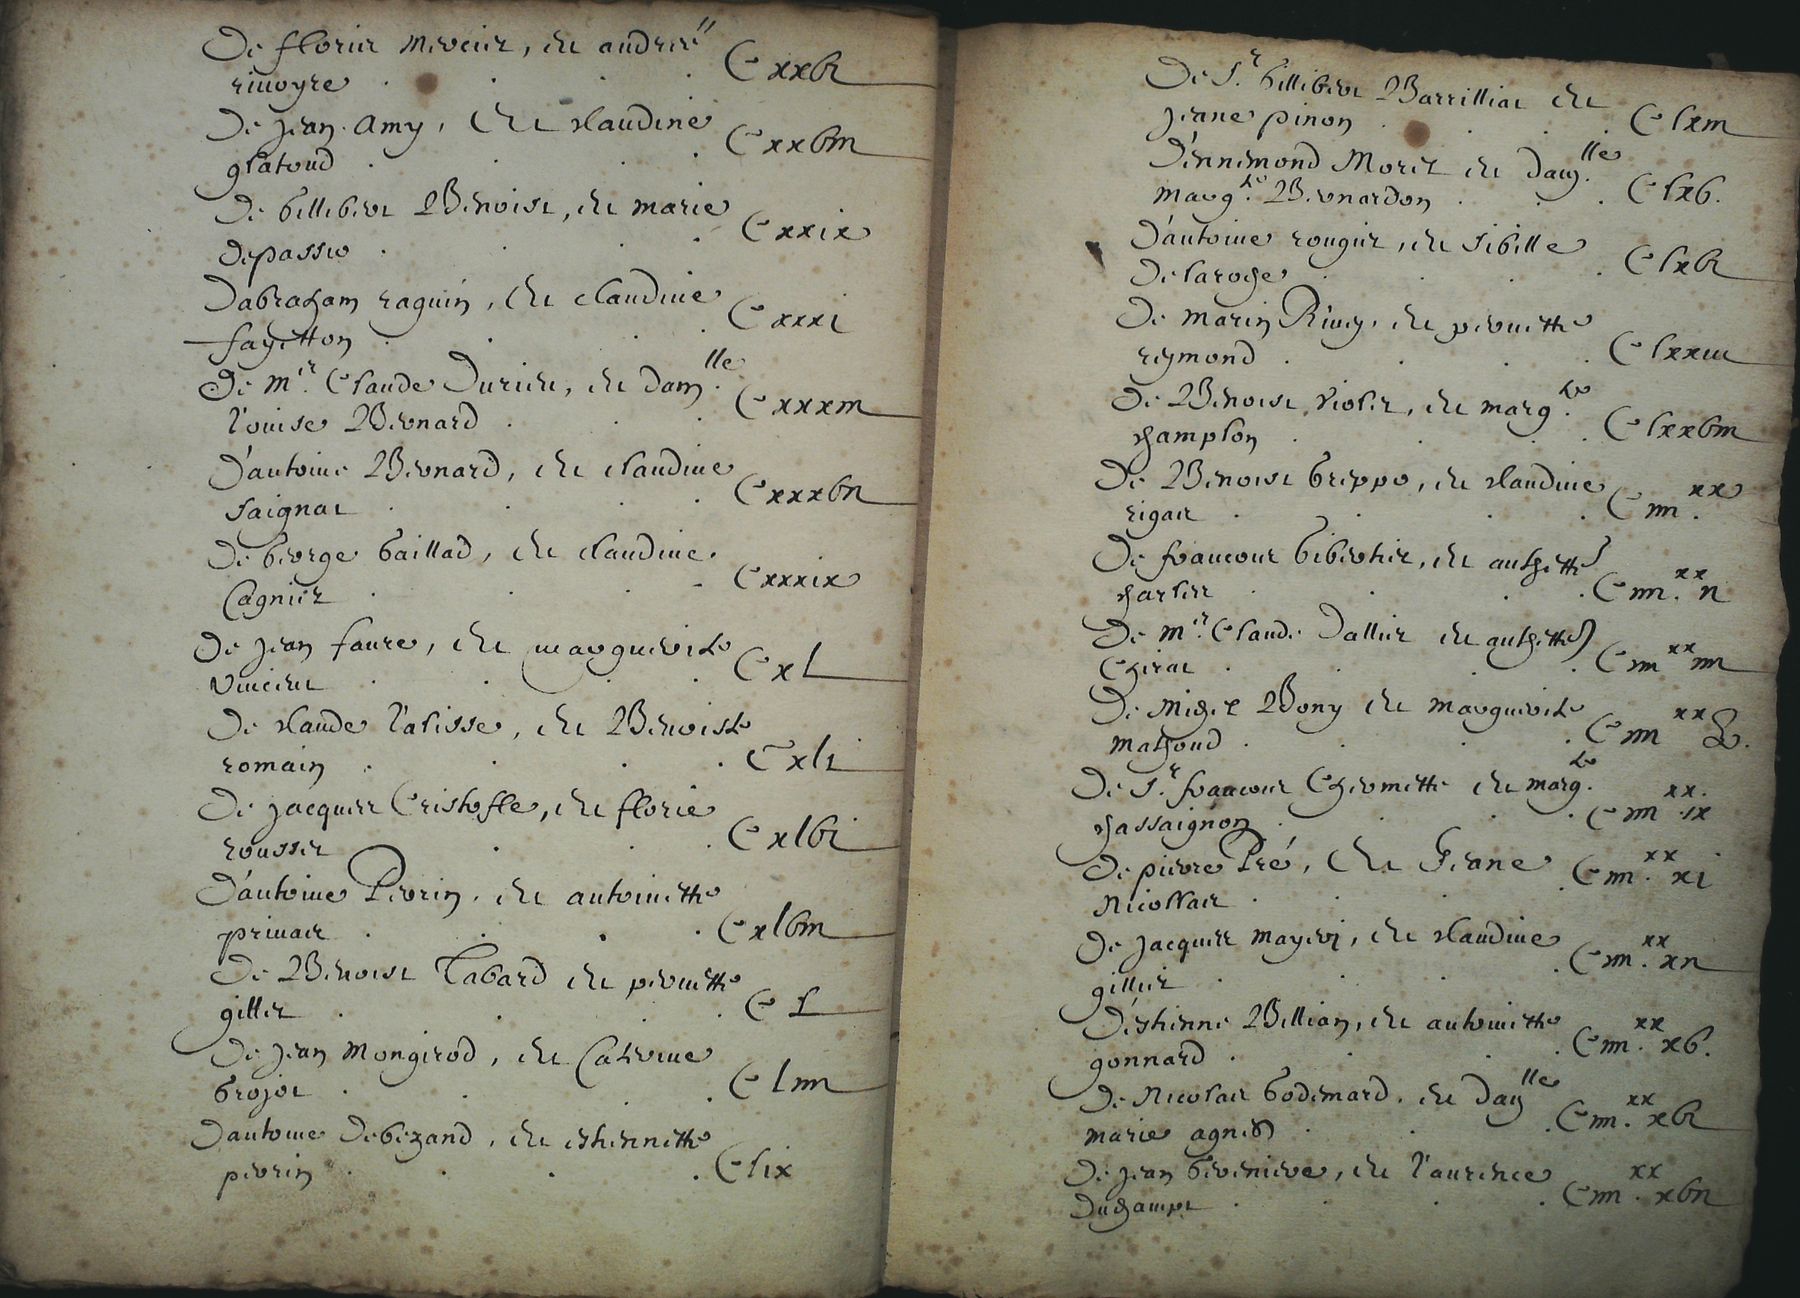 De florir mercier, et andree
rivoyre . . . . Cxxbi
De jean Amy, Et claudine
glatoud . . . Cxxbiii
De Gillibert Benoist, et marie
depassio . . . . Cxxix
Dabraham raguin, Et claudine
fayetton . . . . Cxxxi
De Mr. Claude Durieu, et dam.lle
Louise Bernard . . . Cxxxiii
D'antoine Bernard, et claudine
saignat . . . . Cxxxbii
De George Gaillad, et claudine
Cagnier . . . . Cxxxix
De jean faure, et marguerite
Vincent . . . . Cxl
De claude Palisse, et Benoiste
romain . . . . Cxli
De jacques Cristofle, et florie
rousset . . . Cxlbi
D'antoine Perrin, et antoinette
privat . . . . Cxlbiii
De Benoist Tabard et pernette
gillet . . . . Cl
De Jean Mongirod, et Caterine
Grojot . . . . Cliiii
Dantoine Debezand, et estiennette
perrin . . . . Clix
De Sr. Gillibert Barrilliat et
jeane pinon . . . . Clxiii
D'ennemond Moret et Dam.lle
marg.te Bernardon . . . Clxb.
D'antoine rougier, et sibille
Delaroche . . . . Clxbi
De marin Rivey, et pernette
reymond . . . . Clxxiii
De Benoist violet, et marg.te
champlon . . . . Clxxbiii
De Benoist Greppo, et claudine
rigat . . . . Ciiii.xx
De francois Gibertier, et anthette
charlin . . . . Ciiii.xx ii
De Mr. Claude Dallier et anthette
Chirat . . . . Ciiii xx iiii
De Michel Bony et marguerite
mathoud . . . . Ciiii xx b.
De Sr. francois Chermette et marg.te
chassaignon . . . . Ciiii xx. ix
De pierre Pré, Et Jeane
Nicollas . . . . Ciiii.xx xi
De jacques mayeri, et claudine
gillier . . . . Ciiii.xx xii
D'estienne Billian, et antoinette
gonnard . . . . Ciiii.xx xb.
De Nicolas Godemard, et Dam.lle
marie agnes . . . Ciiii.xx xbi
De jean Gerenieve, et Laurence
Duchampt . . . . Ciiii.xx xbii